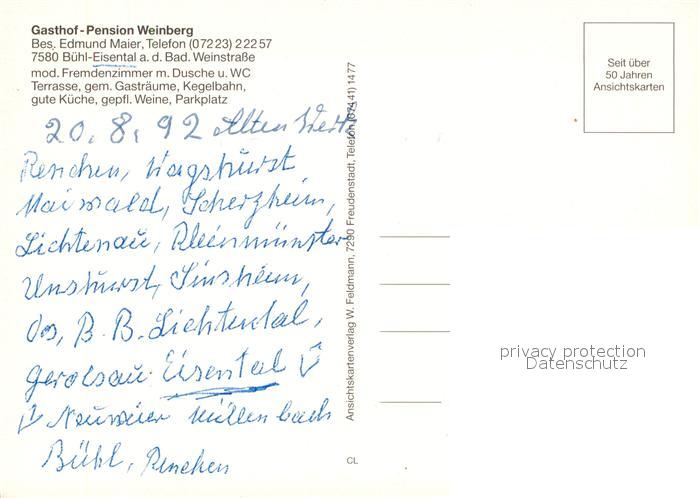 Gasthof-Pension Weinberg
Bes. Edmund Maier, Telefon (07223) 22257
7580 Bühl-Eisental a. d. Bad. Weinstraße
mod. Fremdenzimmer m. Dusche u. WC
Terrasse, gem. Gasträume, Kegelbahn,
gute Küche, gepfl. Weine, Parkplatz
Seit über
50 Jahren
Ansichtskarten
20. 8. 92 Alten
Renchen, Wagshurst
Maiwald, Scherzheim,
Lichtenau, Kleinmünster
Unshurst, Sinsheim,
Oos, B. B. Lichtental,
Gerolsau Eisental
Neuweier Müllenbach
Bühl, Renchen
Ansichtskartenverlag W. Feldmann, 7290 Freudenstadt, Telefon (07441) 1477
CL
privacy protection
Datenschutz